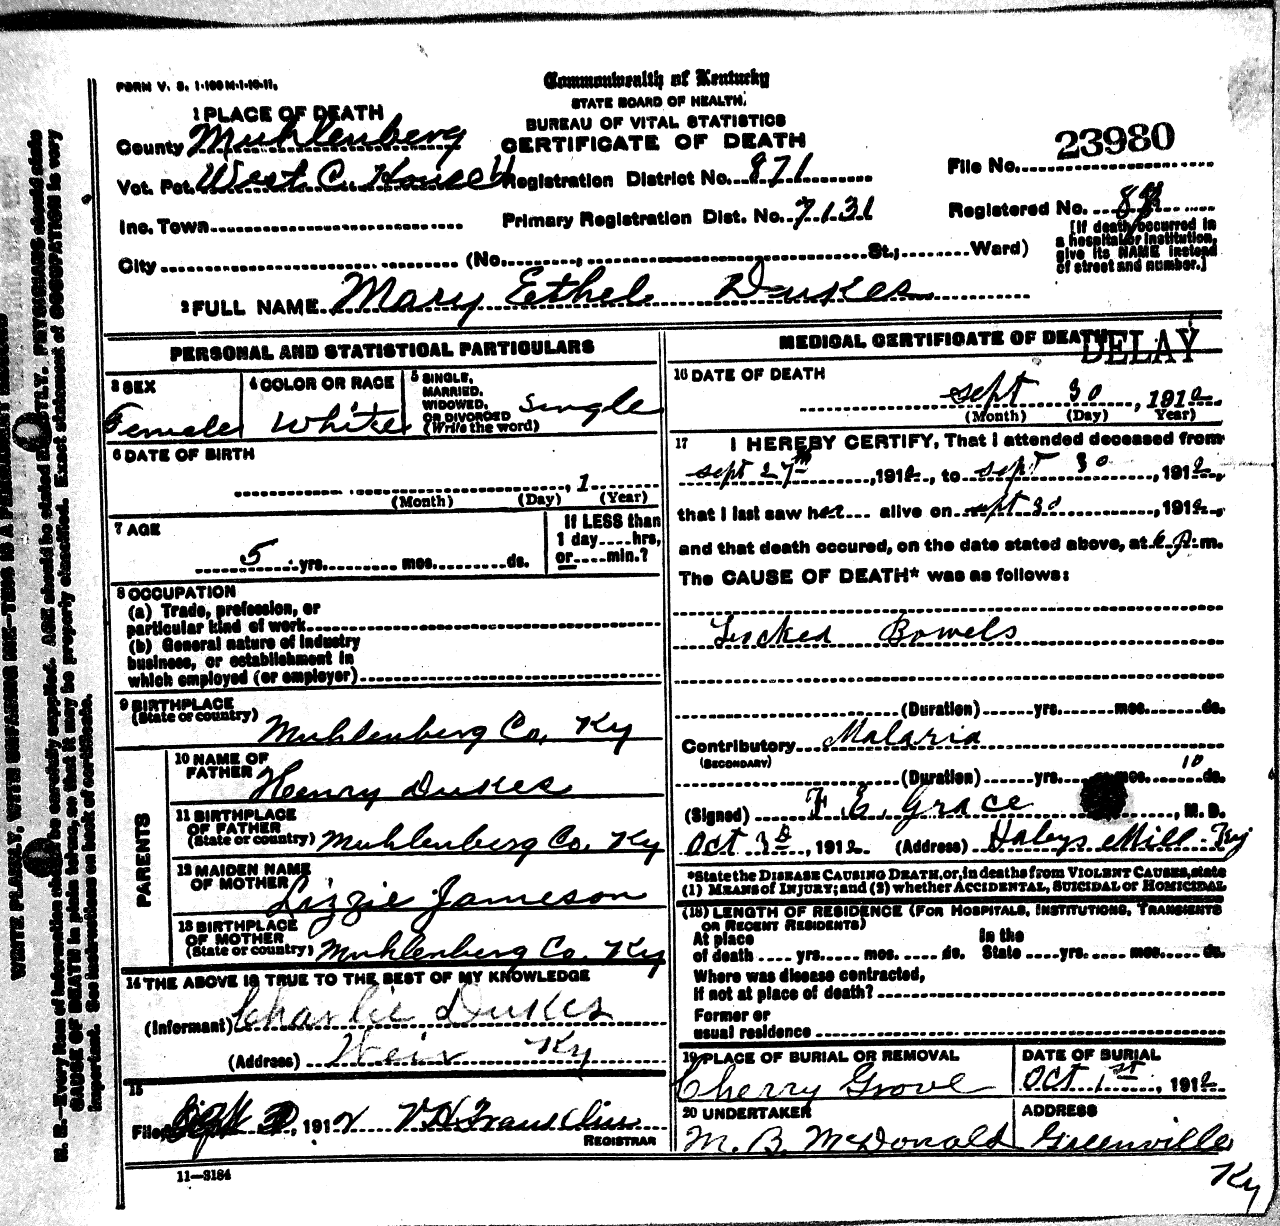 FORM V. S. 1-100 M-1-10-11.
Commonwealth of Kentucky
STATE BOARD OF HEALTH,
BUREAU OF VITAL STATISTICS
CERTIFICATE OF DEATH
1 PLACE OF DEATH
County Muhlenberg
Vot. Pct. West C. House
Registration District No. 871
File No. 23980
Inc. Town
Primary Registration Dist. No. 7131
Registered No.
City (No. , St.; Ward)
[If death occurred in
a hospital or institution,
give its NAME instead
of street and number.]
2 FULL NAME Mary Ethel Dukes
PERSONAL AND STATISTICAL PARTICULARS
3 SEX
Female
4 COLOR OR RACE
White
5 SINGLE,
MARRIED,
WIDOWED,
OR DIVORCED
(Write the word)
Single
6 DATE OF BIRTH
, 1
(Month) (Day) (Year)
7 AGE
5 yrs. mos. ds.
If LESS than
1 day hrs,
or min.?
8 OCCUPATION
(a) Trade, profession, or
particular kind of work
(b) General nature of industry
business, or establishment in
which employed (or employer)
9 BIRTHPLACE
(State or country)
Muhlenberg Co. Ky
PARENTS
10 NAME OF
FATHER
Henry Dukes
11 BIRTHPLACE
OF FATHER
(State or country) Muhlenberg Co. Ky
12 MAIDEN NAME
OF MOTHER
Lizzie Jameson
13 BIRTHPLACE
OF MOTHER
(State or country) Muhlenberg Co. Ky
14 THE ABOVE IS TRUE TO THE BEST OF MY KNOWLEDGE
(Informant) Charlie Dukes
(Address) Weir Ky
15
Filed , 1912 V H Franklin
REGISTRAR
11—3184
MEDICAL CERTIFICATE OF DEATH
DELAY
16 DATE OF DEATH
Sept 30, 1912
(Month) (Day) (Year)
17 I HEREBY CERTIFY, That I attended deceased from
Sept 27th, 1912, to Sept 30, 1912,
that I last saw her alive on Sept 30, 1912,
and that death occured, on the date stated above, at 6 P. m.
The CAUSE OF DEATH* was as follows:
Locked Bowels
(Duration) yrs. mos. ds.
Contributory Malaria
(SECONDARY)
(Duration) yrs. mos. 10 ds.
(Signed) F. E. Grace, M. D.
Oct 3d, 1912 (Address) Haleys Mill Ky
*State the DISEASE CAUSING DEATH, or, in deaths from VIOLENT CAUSES, state
(1) MEANS of INJURY; and (2) whether ACCIDENTAL, SUICIDAL or HOMICIDAL
(18) LENGTH OF RESIDENCE (FOR HOSPITALS, INSTITUTIONS, TRANSIENTS
OR RECENT RESIDENTS)
At place In the
of death yrs. mos. ds. State yrs. mos. ds.
Where was disease contracted,
If not at place of death?
Former or
usual residence
19 PLACE OF BURIAL OR REMOVAL
Cherry Grove
DATE OF BURIAL
Oct 1st, 1912
20 UNDERTAKER
M. B. McDonald
ADDRESS
Greenville
Ky
WRITE PLAINLY, WITH UNFADING INK—THIS IS A PERMANENT RECORD
N. B.—Every item of information should be carefully supplied. AGE should be stated EXACTLY. PHYSICIANS should state
CAUSE OF DEATH in plain terms, so that it may be properly classified. Exact statement of OCCUPATION is very
important. See instructions on back of certificate.